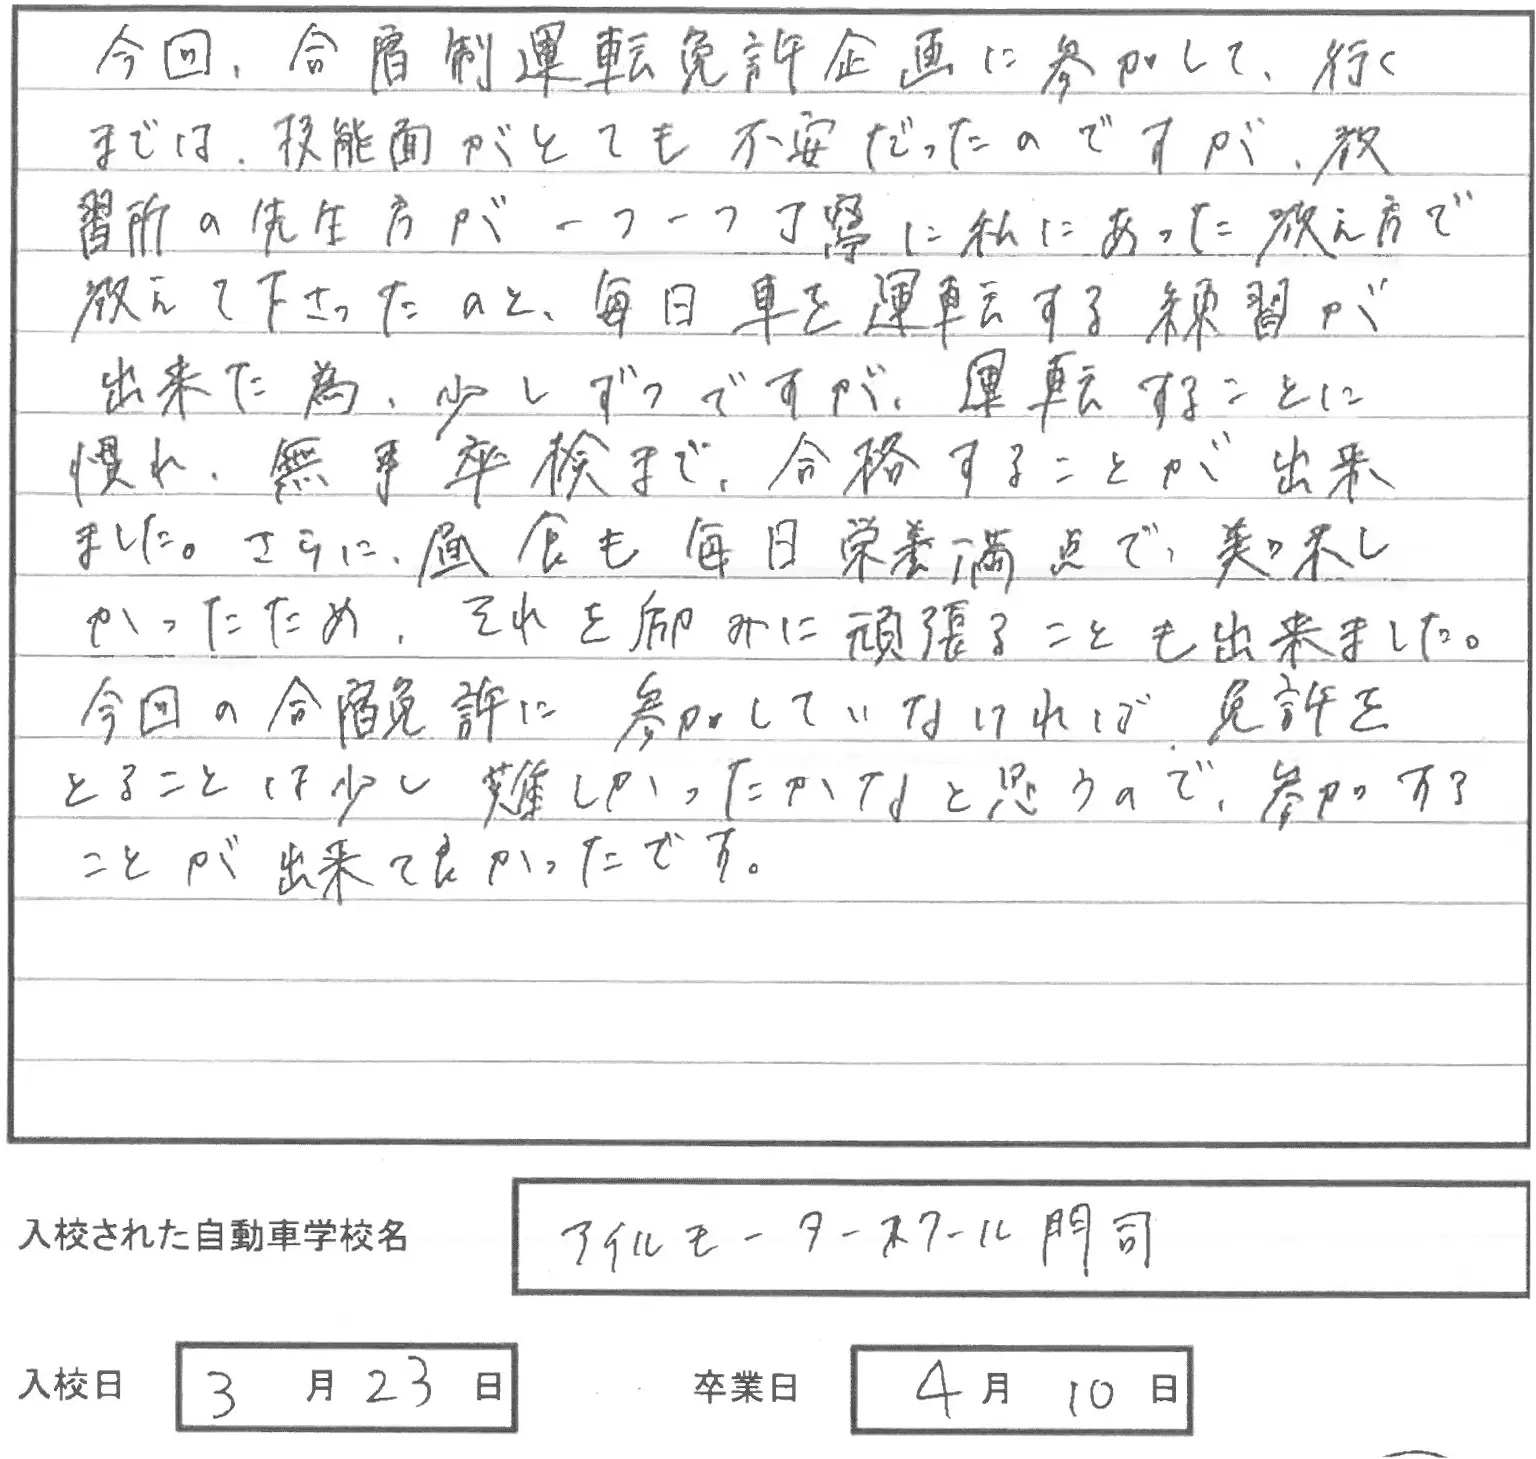 今回、合宿制運転免許企画に参加して、行く
までは、技能面がとても不安だったのですが、教
習所の先生方が一つ一つ丁寧に私にあった教え方で
教えて下さったのと、毎日車を運転する練習が
出来た為、少しずつですが、運転することに
慣れ、無事卒検まで、合格することが出来
ました。さらに、昼食も毎日栄養満点で、美味し
かったため、それを励みに頑張ることも出来ました。
今回の合宿免許に参加していなければ、免許を
とることは少し難しかったかなと思うので、参加する
ことが出来て良かったです。
入校された自動車学校名 アイルモータースクール門司
入校日 3月23日 卒業日 4月10日